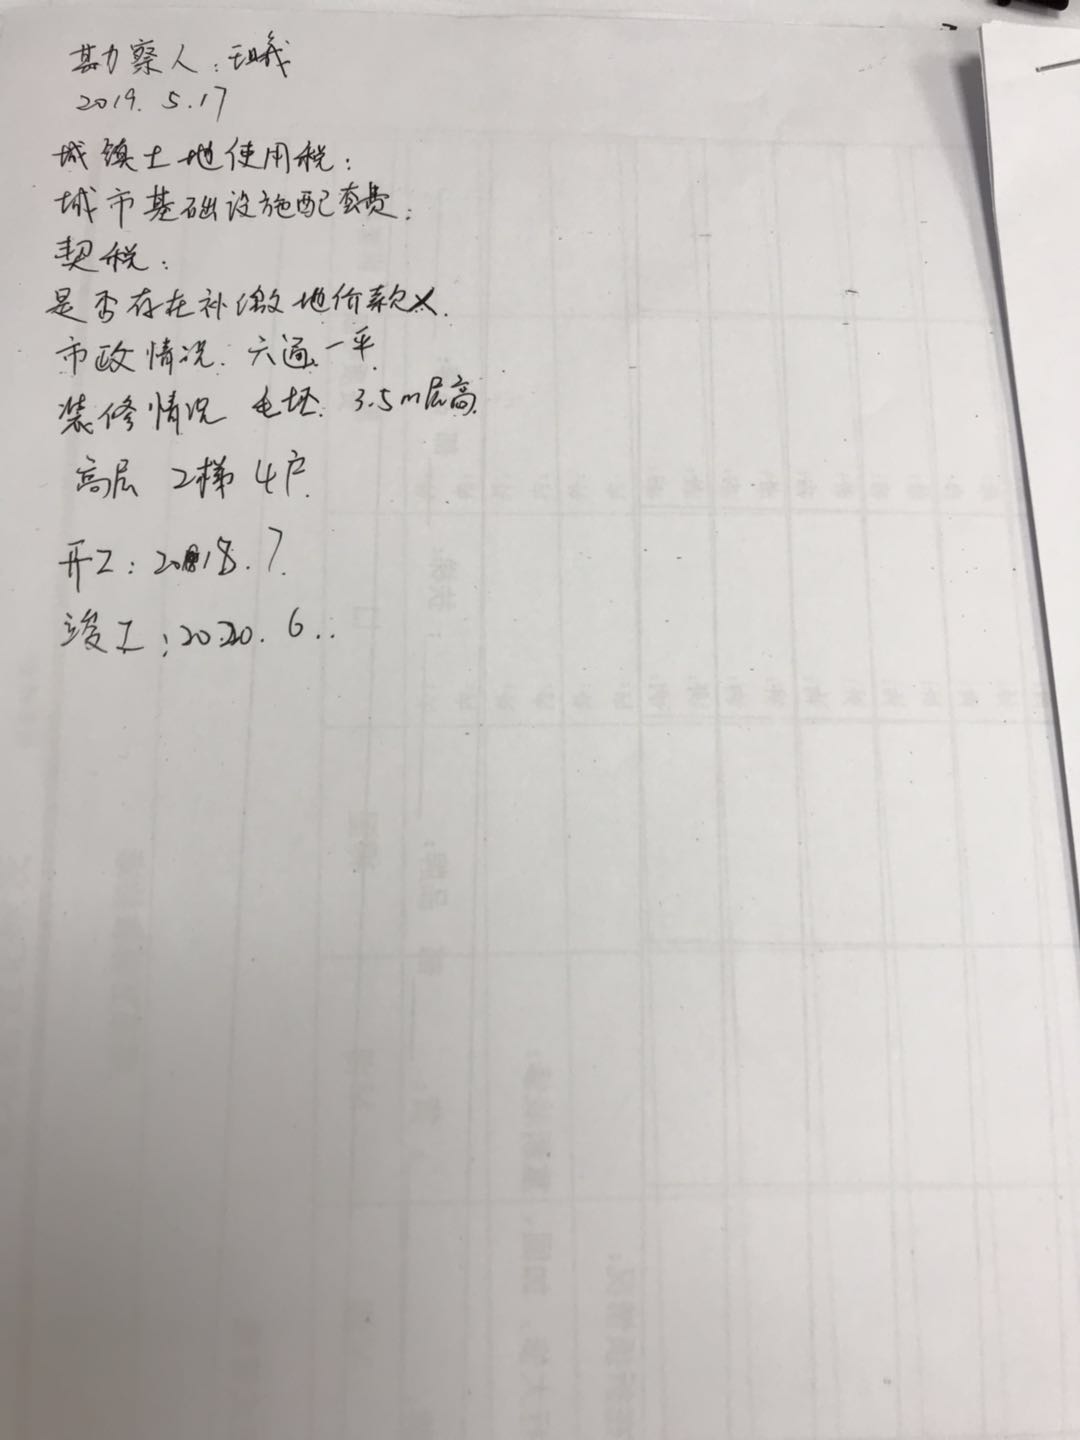 勘察人：王曦
2019. 5.17
城镇土地使用税：
城市基础设施配套费：
契税：
是否存在补缴地价款×.
市政情况. 六通一平.
装修情况 毛坯. 3.5m层高.
高层 2梯 4户.
开工：2018.7.
竣工：2020.6..